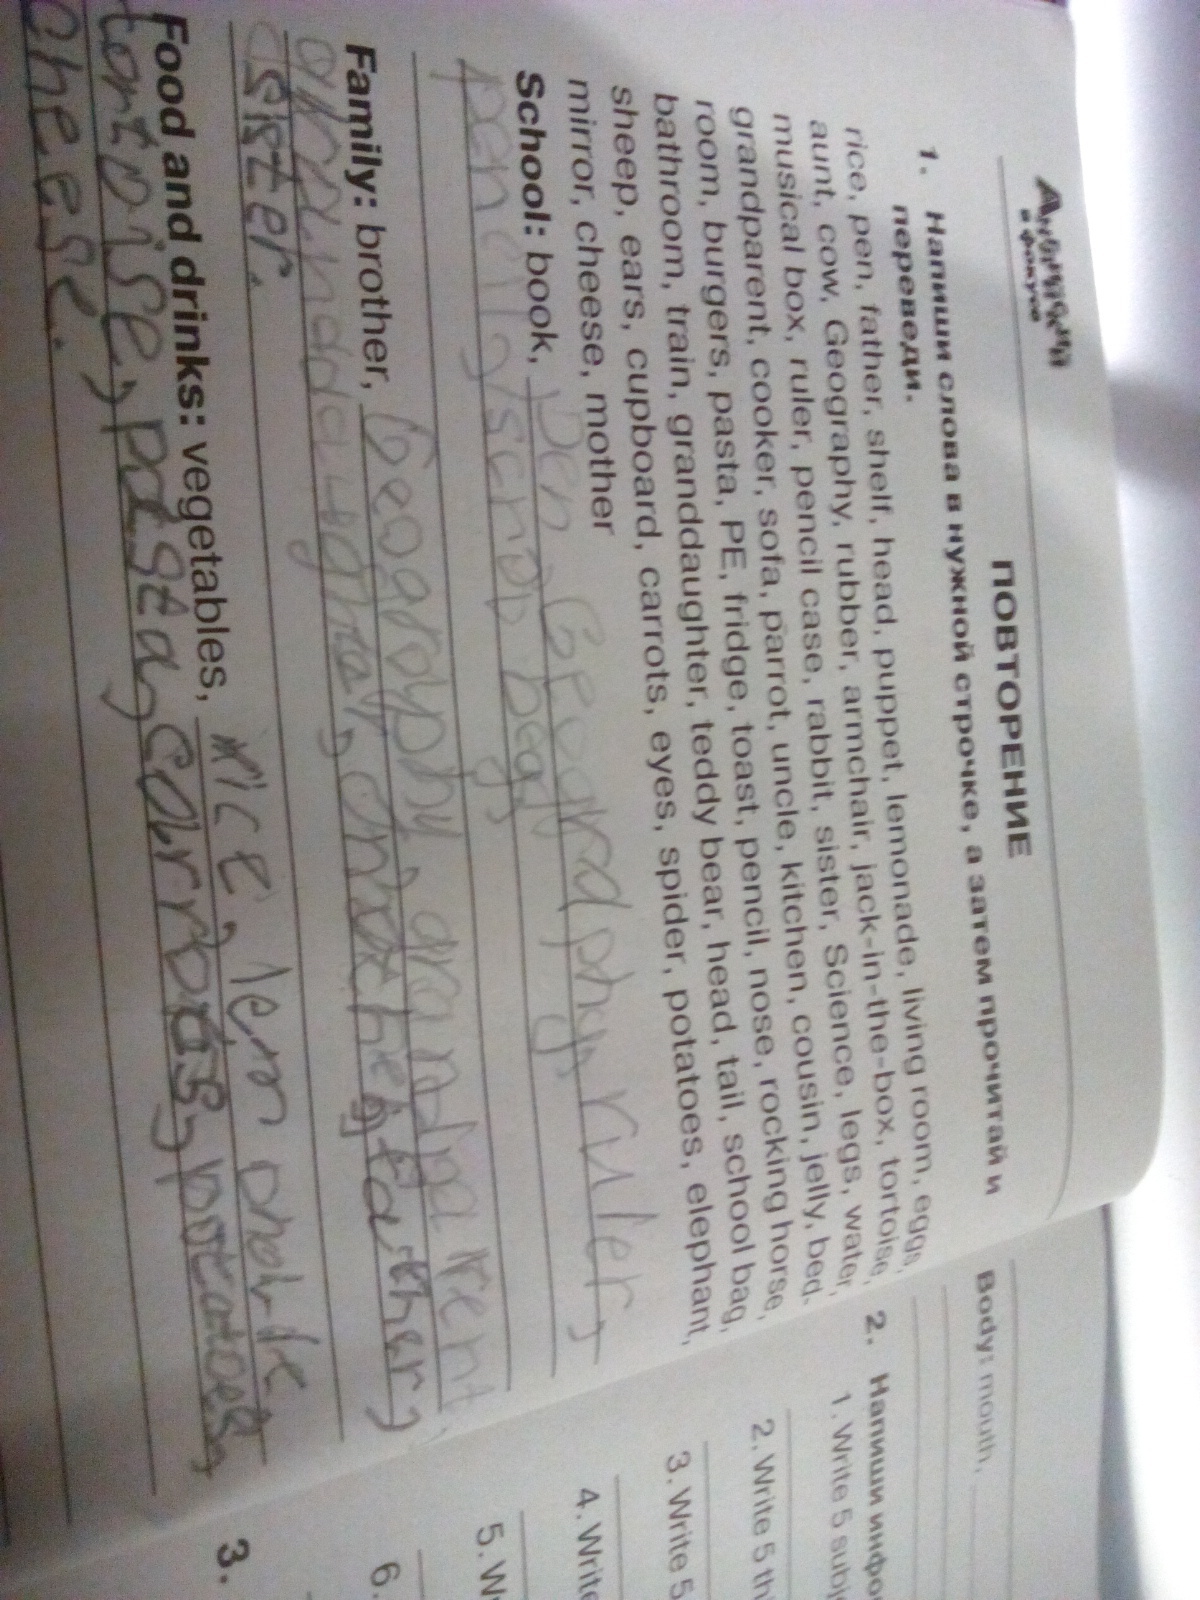 Английский
в фокусе
ПОВТОРЕНИЕ
1. Напиши слова в нужной строчке, а затем прочитай и
переведи.
rice, pen, father, shelf, head, puppet, lemonade, living room, eggs,
aunt, cow, Geography, rubber, armchair, jack-in-the-box, tortoise,
musical box, ruler, pencil case, rabbit, sister, Science, legs, water,
grandparent, cooker, sofa, parrot, uncle, kitchen, cousin, jelly, bed-
room, burgers, pasta, PE, fridge, toast, pencil, nose, rocking horse,
bathroom, train, granddaughter, teddy bear, head, tail, school bag,
sheep, ears, cupboard, carrots, eyes, spider, potatoes, elephant,
mirror, cheese, mother
School: book, pen Geography, ruler,
pencil, scrool bag,
Family: brother, Geography, grandparent,
father,
sister.
Food and drinks: vegetables, rice,
tortoise, pasta, carrots, potatoes,
cheese.
Body: mouth,
2. Напиши инфо
1. Write 5 subj
2. Write 5 th
3. Write 5
4. Write
5. W
6.
3.